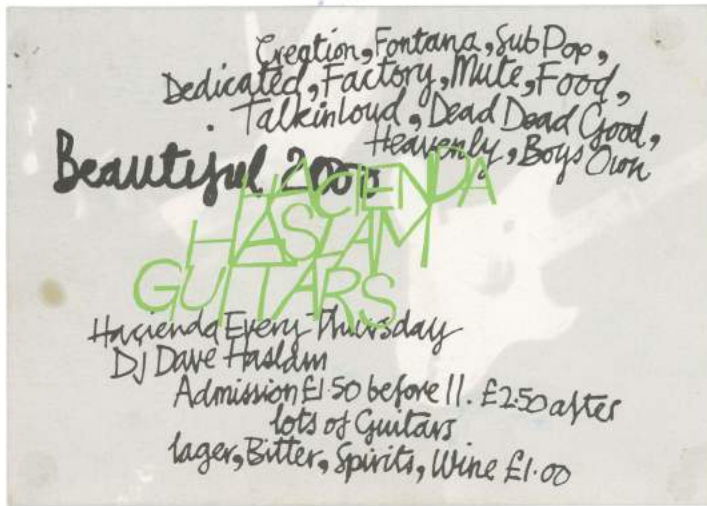 Creation, Fontana, Sub Pop,
Dedicated, Factory, Mute, Food,
Talkinloud, Dead Dead Good,
Heavenly, Boys Own
Beautiful 2000
HACIENDA
HASLAM
GUITARS
Hacienda Every Thursday
DJ Dave Haslam
Admission £1.50 before 11. £2.50 after
lots of Guitars
lager, Bitter, Spirits, Wine £1.00